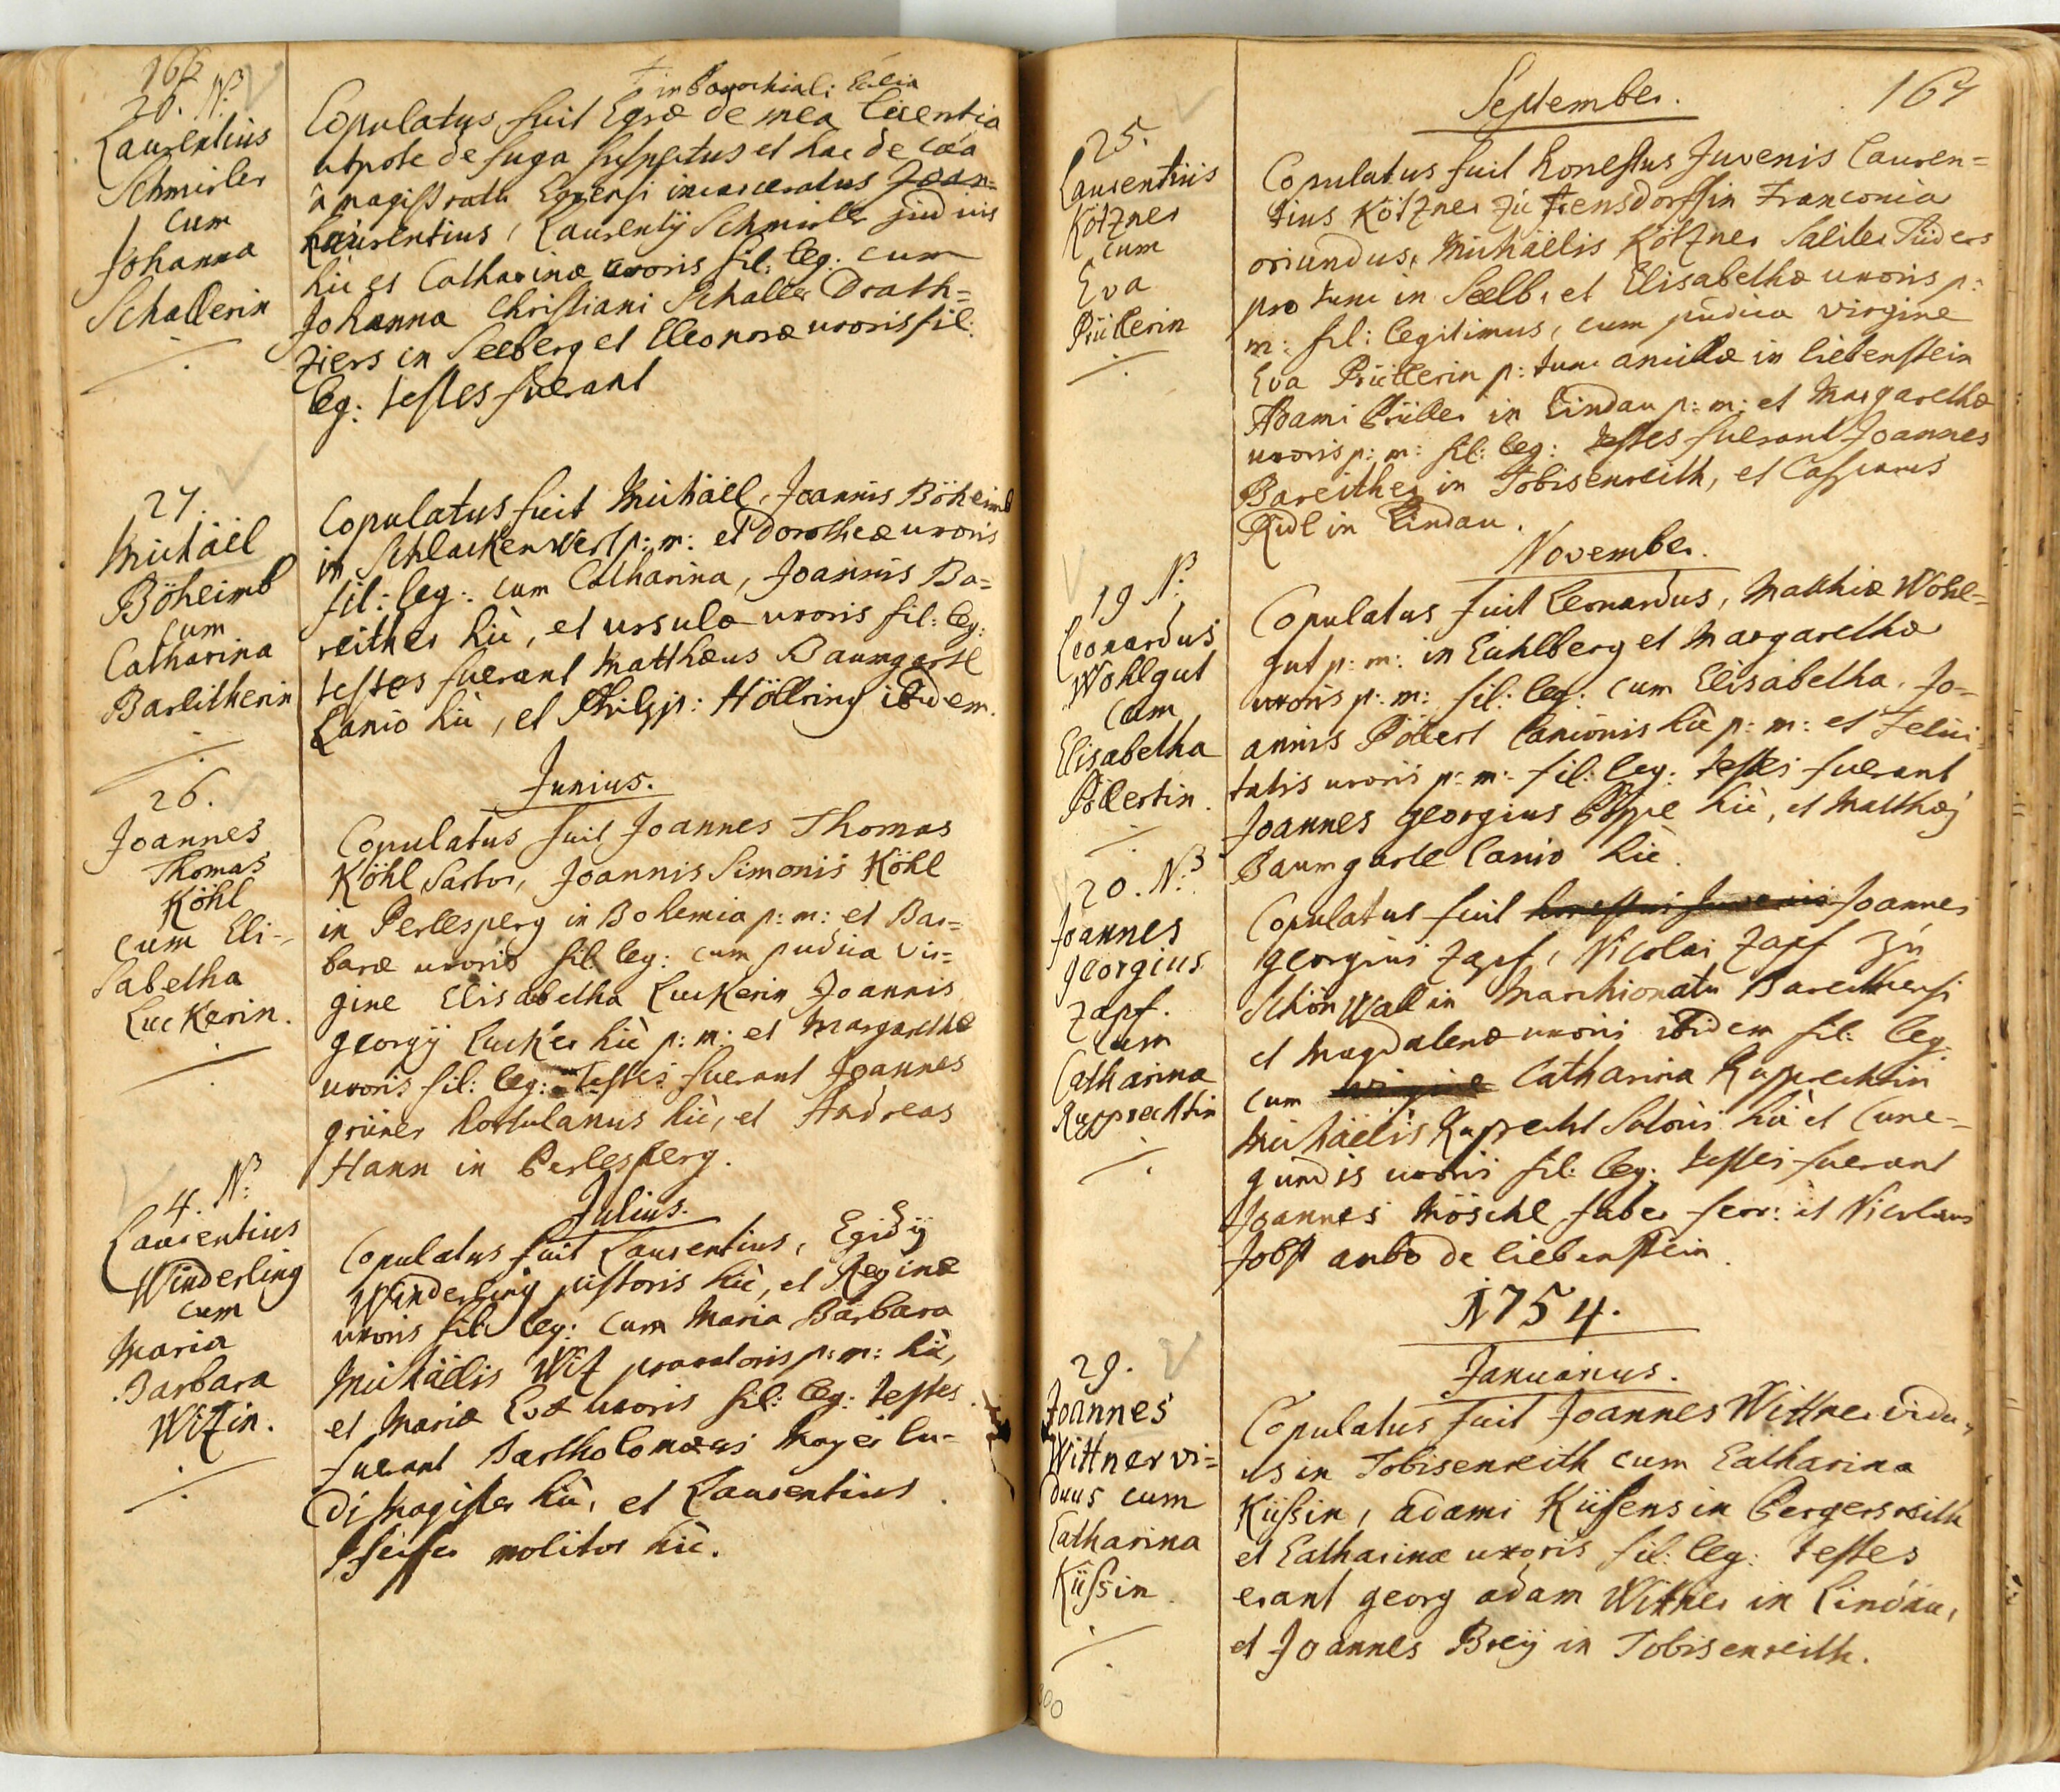 166
26. NB
Laurentius
Schmirler
cum
Johanna
Schallerin
† in Parochiali Ecclesia
Copulatus fuit Egræ de mea licentia
utpote de fuga suspectus et hac de caa
à magistratu Egrensi incarceratus Joan=
Laurentius, Laurentÿ Schmirler
hic et Catharinæ uxoris fil: leg: cum
Johanna Christiani Schaller Drath=
ziers in Seeberg et Eleonoræ uxoris fil:
leg: testes fuerant
27.
Michäel
Böheimb
cum
Catharina
Bareitherin
Copulatus fuit Michäel, Joannis Böheimb
in Schlackenwert p: m: et Dorotheæ uxoris
fil: leg: cum Catharina, Joannis Ba=
reither hic, et ursulæ uxoris fil: leg:
testes fuerant Matthæus Baumgartl
Lanio hic, et Philipp: Höllring ibidem.
Junius.
26.
Joannes
Thomas
Köhl
cum Eli=
sabetha
Luckerin.
Copulatus fuit Joannes Thomas
Köhl Sartor, Joannis Simonis Köhl
in Perlesperg in Bohemia p: m: et Bar=
baræ uxoris fil: leg: cum pudica vir=
gine Elisabetha Luckerin Joannis
georgÿ Lucker hic p: m: et Margarethæ
uxoris fil: leg: Testes fuerant Joannes
grüner hortulanus hic, et Andreas
Hann in Perlesperg.
Julius.
4. NB
Laurentius
Winderling
cum
Maria
Barbara
Witzin.
Copulatus fuit Laurentius, Egidÿ
Winderling pistoris hic, et Reginæ
uxoris fil: leg: cum Maria Barbara
Michäelis Witz p: m: hic,
et Mariæ Evæ uxoris fil: leg: testes
fuerant Bartholomæus Mayer lu=
di Magister hic, et Laurentius
Pfeifer molitor hic.
167
September.
25.
Laurentius
Kötzner
cum
Eva
Prüllerin
Copulatus fuit honestus Juvenis Lauren=
tius Kötzner zu Trensdorff in Franconia
oriundus, Michäelis Kötzner Saliter Sieders
pro tunc in Seelb, et Elisabethæ uxoris p:
m: fil: legitimus, cum pudica virgine
Eva Prüllerin p: tunc ancilla in liebenstein
Adami Prüller in Lindau p: m: et Margarethæ
uxoris p: m: fil: leg: testes fuerant Joannes
Bareither in Tobisenreith, et Casparus
Ridl in Lindau.
November.
19 NB
Leonardus
Wohlgut
cum
Elisabetha
Pöllertin.
Copulatus fuit Leonardus, Matthiæ Wohl=
gut p: m: in Eichlberg et Margarethæ
uxoris p: m: fil: leg: cum Elisabetha, Jo=
annis Pöllert lanionis hic p: m: et Felici=
tatis uxoris p: m: fil: leg: testes fuerant
Joannes georgius Poppe hic, et Matthæj
Baumgartl lanio hic.
20. NB
Joannes
georgius
Zapf.
cum
Catharina
Rupprechtin
Copulatus fuit honestus Juvenis Joannes
georgius Zapf, Nicolai Zapf zu
Schönwall in Marchionatu Bareithensi
et Magdalenæ uxoris ibidem fil: leg:
cum virgine Catharina Rupprechtin
Michäelis Ruprecht Sutoris hic et Cune=
gundis uxoris fil: leg: testes fuerant
Joannes Möschl faber ferr: et Nicolaus
Jobst ambo de liebenstein.
1754.
Januarius.
29.
Joannes
Wittner vi=
duus cum
Catharina
Küssin.
Copulatus fuit Joannes Wittner vidu=
us in Tobisenreith cum Catharina
Küssin, adami Küsens in Pergersreith
et Catharinæ uxoris fil: leg: testes
erant georg adam Wittner in Lindau,
et Joannes Breÿ in Tobisenreith.